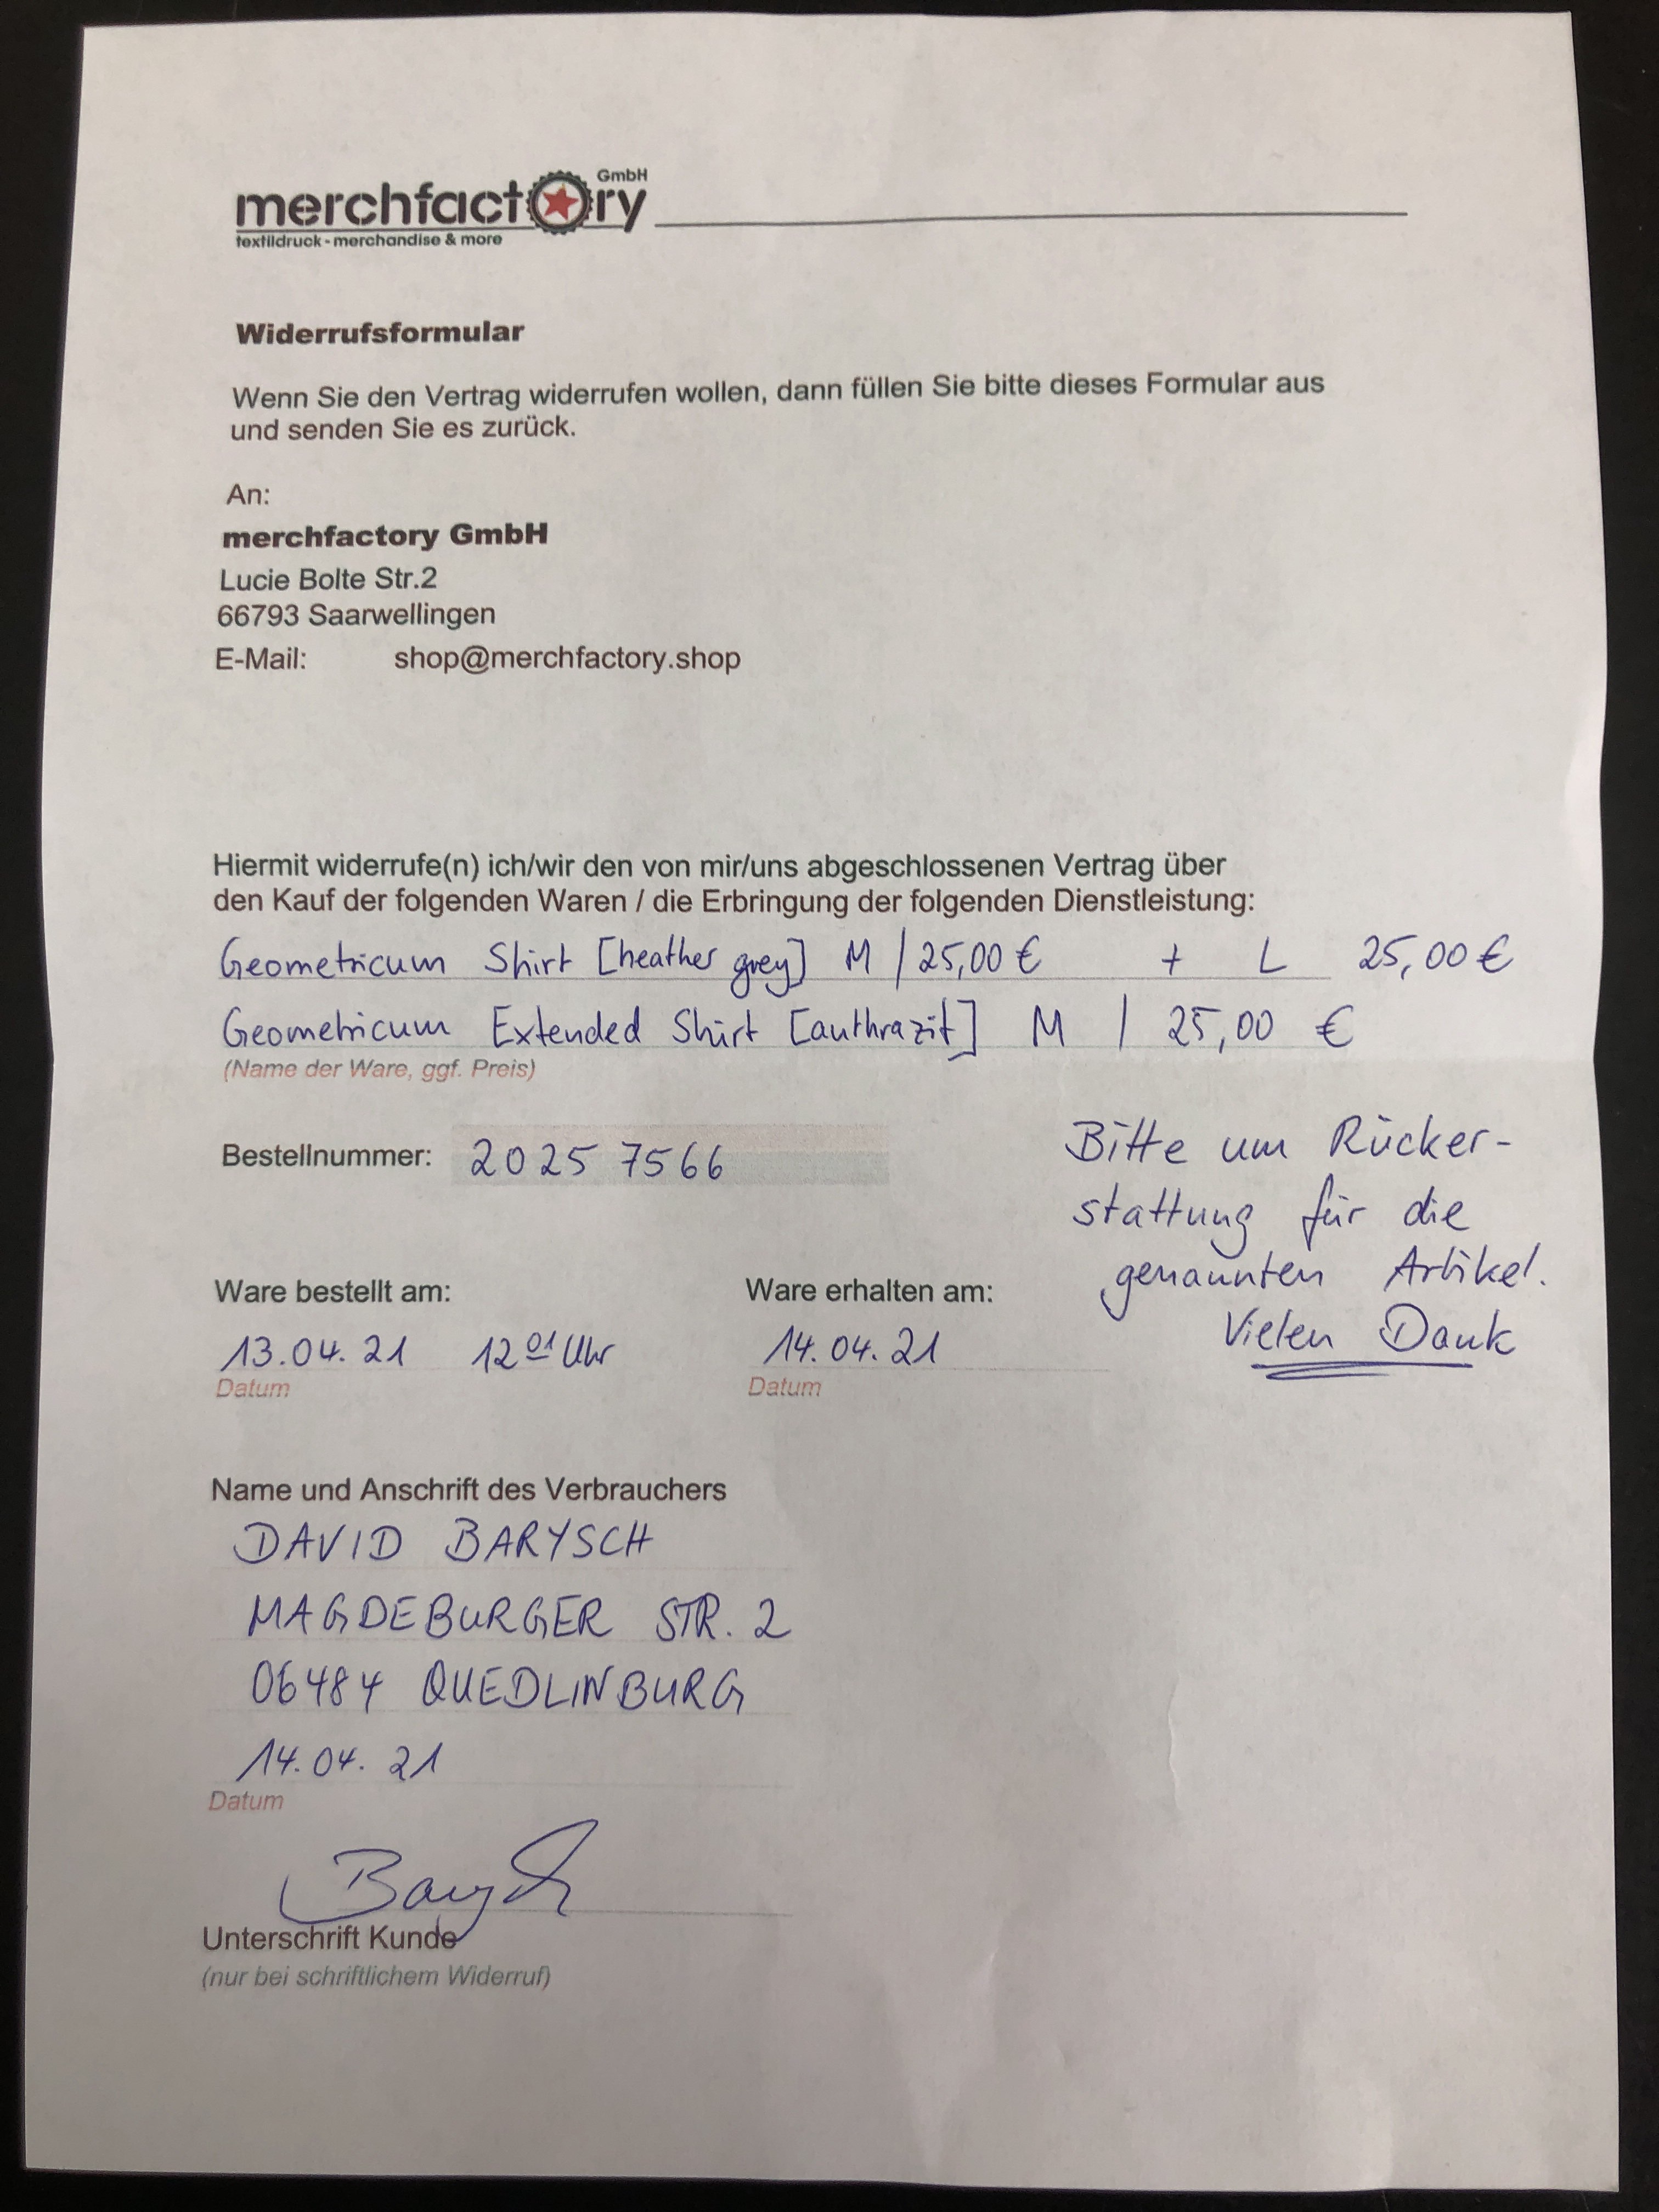 merchfactory GmbH
textildruck - merchandise & more
Widerrufsformular
Wenn Sie den Vertrag widerrufen wollen, dann füllen Sie bitte dieses Formular aus
und senden Sie es zurück.
An:
merchfactory GmbH
Lucie Bolte Str.2
66793 Saarwellingen
E-Mail: shop@merchfactory.shop
Hiermit widerrufe(n) ich/wir den von mir/uns abgeschlossenen Vertrag über
den Kauf der folgenden Waren / die Erbringung der folgenden Dienstleistung:
Geometricum Shirt [heather grey] M | 25,00 € + L 25,00 €
Geometricum Extended Shirt [anthrazit] M | 25,00 €
(Name der Ware, ggf. Preis)
Bestellnummer: 2025 7566
Bitte um Rücker-
stattung für die
genannten Artikel.
Vielen Dank
Ware bestellt am: Ware erhalten am:
13.04.21 12 01 Uhr 14.04.21
Datum Datum
Name und Anschrift des Verbrauchers
DAVID BARYSCH
MAGDEBURGER STR. 2
06484 QUEDLINBURG
14.04.21
Datum
Barysch
Unterschrift Kunde
(nur bei schriftlichem Widerruf)